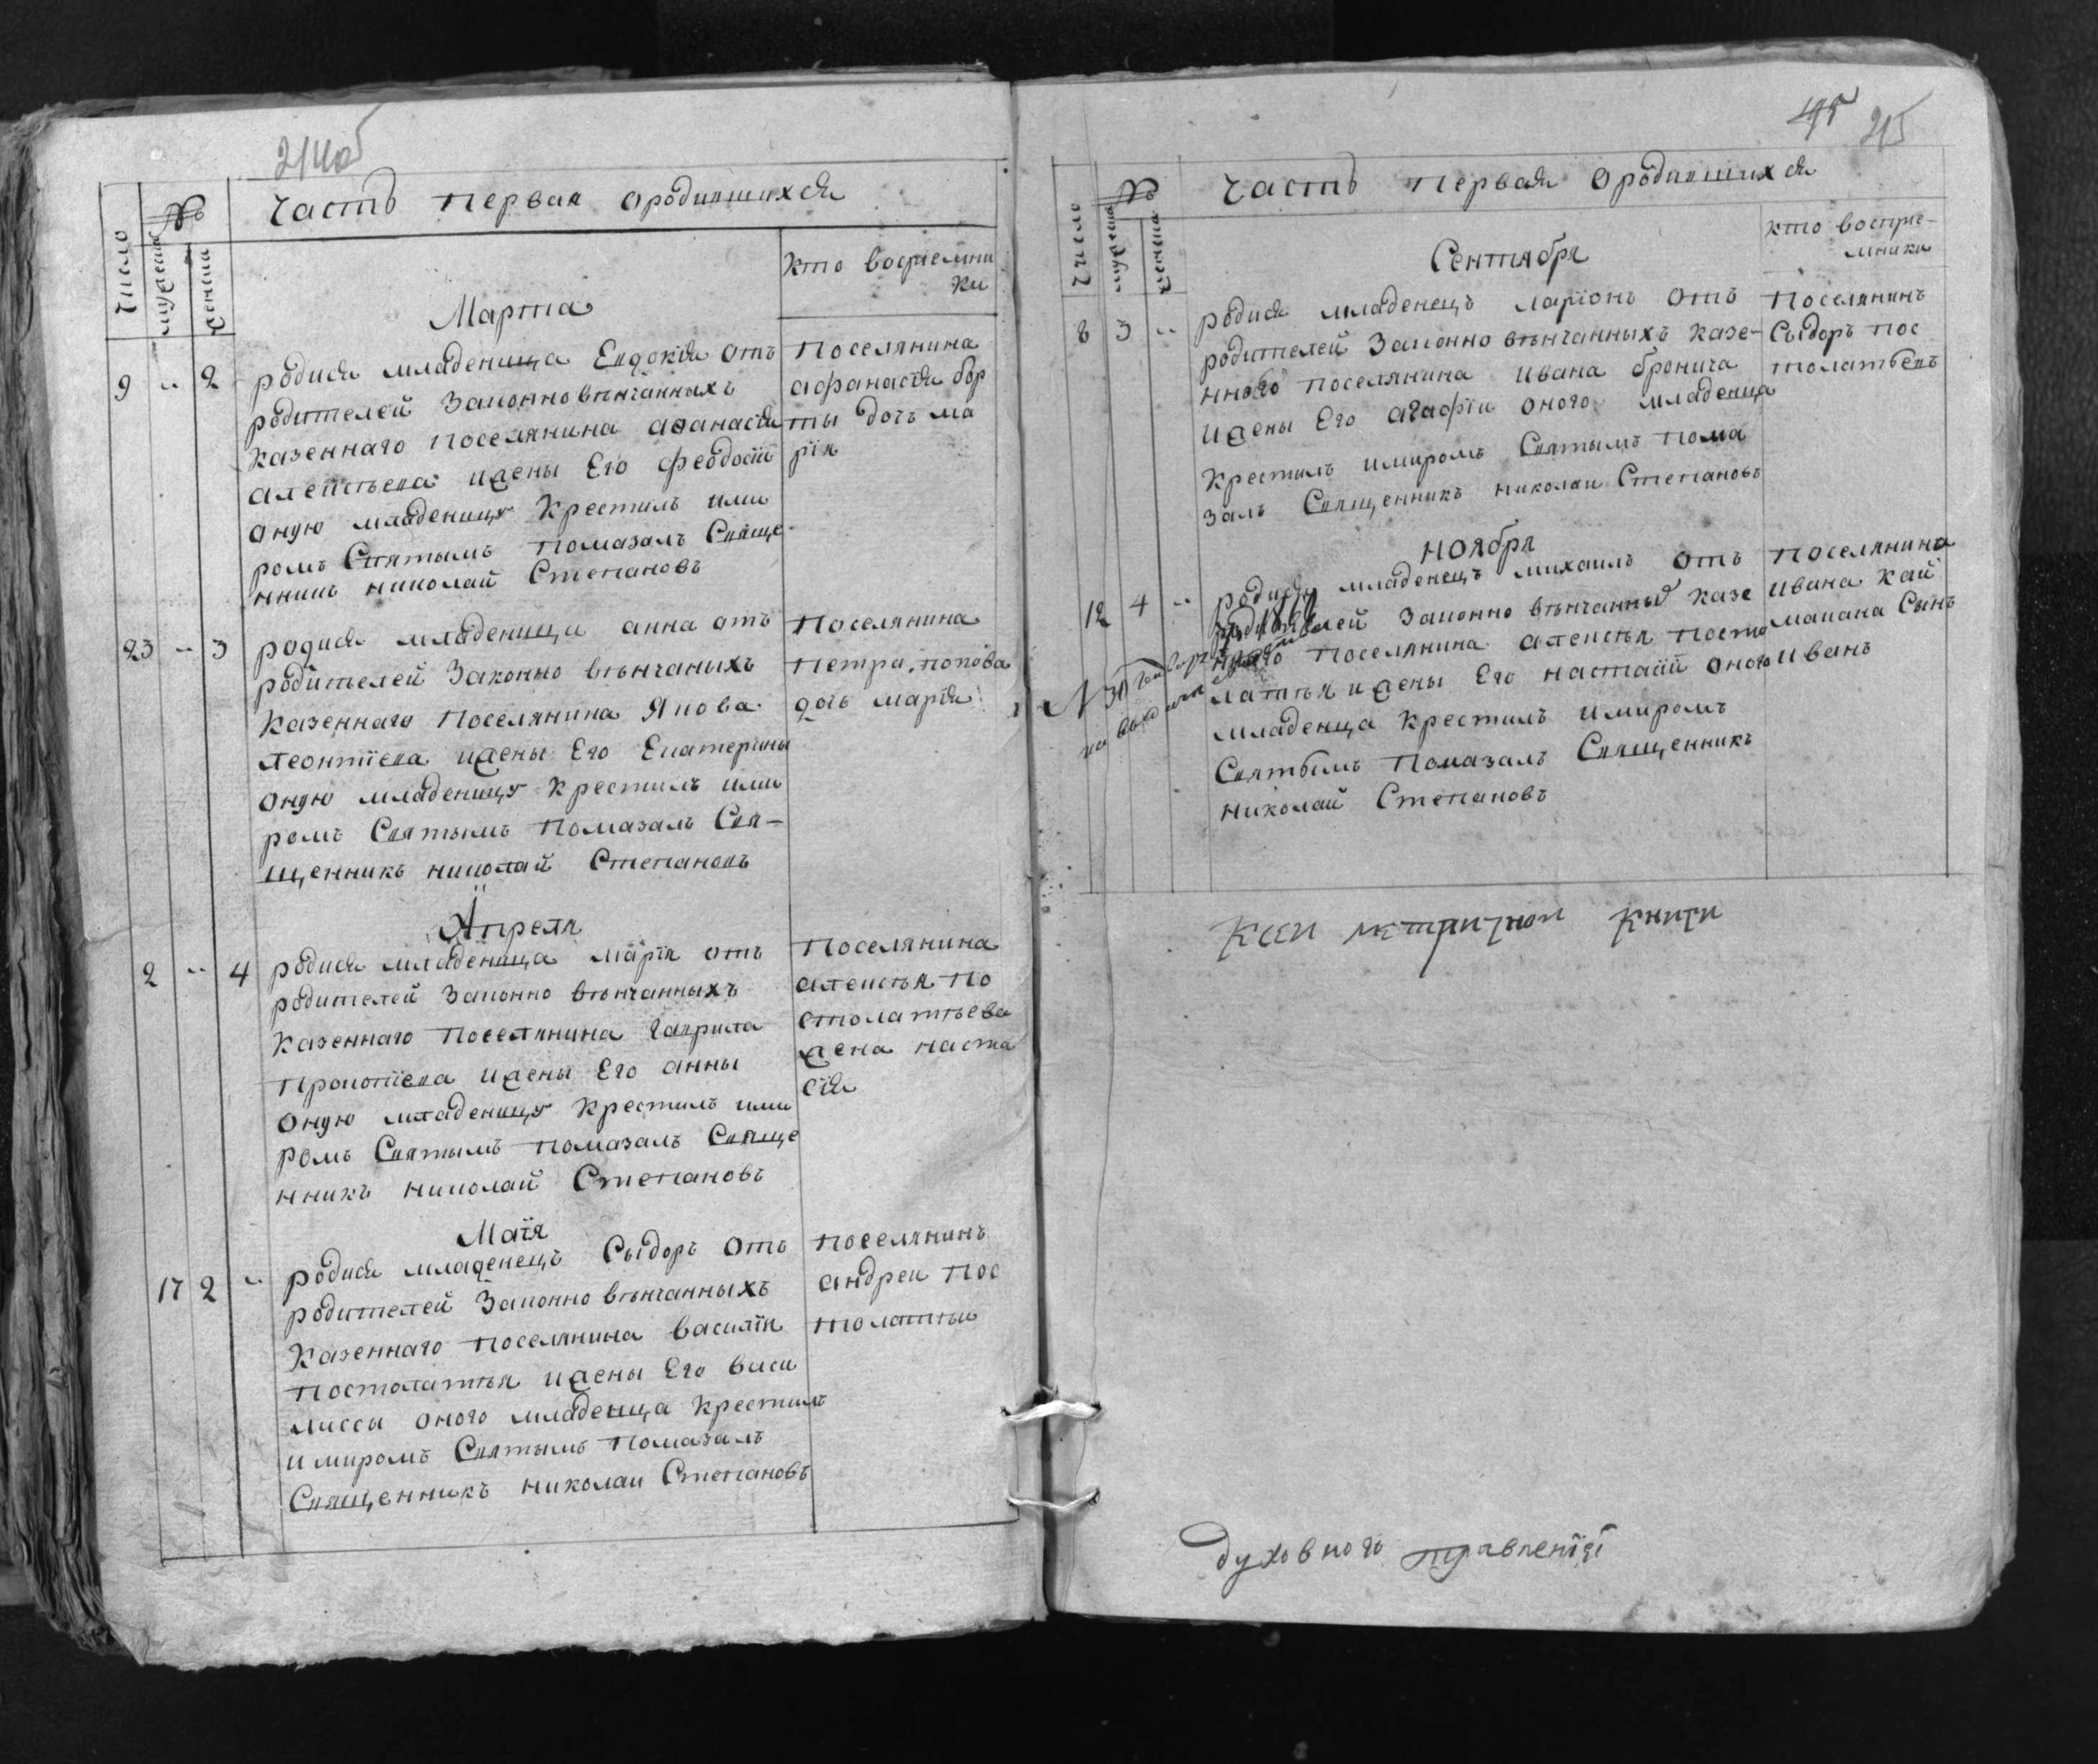 214об
Часть первая ородившихся
Число
№
мужеска
женска
кто восприемни
ки
Марта
9 " 2
родися младеница Евдокия отъ
родителей Законновѣнчанныхъ
казеннаго поселянина афанасия
алеѯѣева ижены Его феодосїи
оную младеницу Крестилъ ими
ромъ Святымъ помазалъ Свяще
нникъ николай Степановъ
поселянина
афанасия бор
ты дочъ ма
рїя
23 " 3
родися младеница анна отъ
родителей Законно вѣнчаныхъ
казеннаго поселянина Якова
леонтїева ижены Его Екатерины
оную младеницу крестилъ ими
ромъ Святымъ помазалъ Свя-
щенникъ николай Степановъ
поселянина
петра попова
дочь марїя
Апреля
2 " 4
родися младеница марїя отъ
родителей Законно вѣнчанныхъ
казеннаго поселянина гаврила
прокопїева ижены Его анны
оную младеницу крестилъ ими
ромъ Святымъ помазалъ Свяще
нникъ николай Степановъ
поселянина
алеѯѣя по
столатѣева
жена наста
сїя
Маїя
17 2 "
родися младенецъ Сыдоръ отъ
родителей Законно вѣнчанныхъ
казеннаго поселянина василїя
постолатѣя ижены Его васи
лиссы оного младенца крестилъ
имиромъ Святымъ помазалъ
Священникъ николаи Степановъ
поселянинъ
андреи пос
толатѣи
215
Часть первая ородившихся
Число
№
мужеска
женска
кто воспрїе-
мники
Сентября
8 3 "
родися младенецъ ларїонъ отъ
родителей Законно вѣнчанныхъ казе-
нного поселянина ивана бронича
ижены Его агафїи оного младенца
крестилъ имиромъ Святымъ пома
залъ Священникъ николаи Степановъ
поселянинъ
Сыдоръ пос
толатьевъ
ноября
12 4 "
родися младенецъ михаилъ отъ
родителей Законно вѣнчанных казе
ннаго поселянина алеѯѣя посто
латѣя ижены Его настасїи оного
младенца крестилъ имиромъ
Святымъ помазалъ Священникъ
николай Степановъ
поселянина
ивана кай
макана Сынъ
иванъ
Ксеи метричнои книги
духовного правленїя